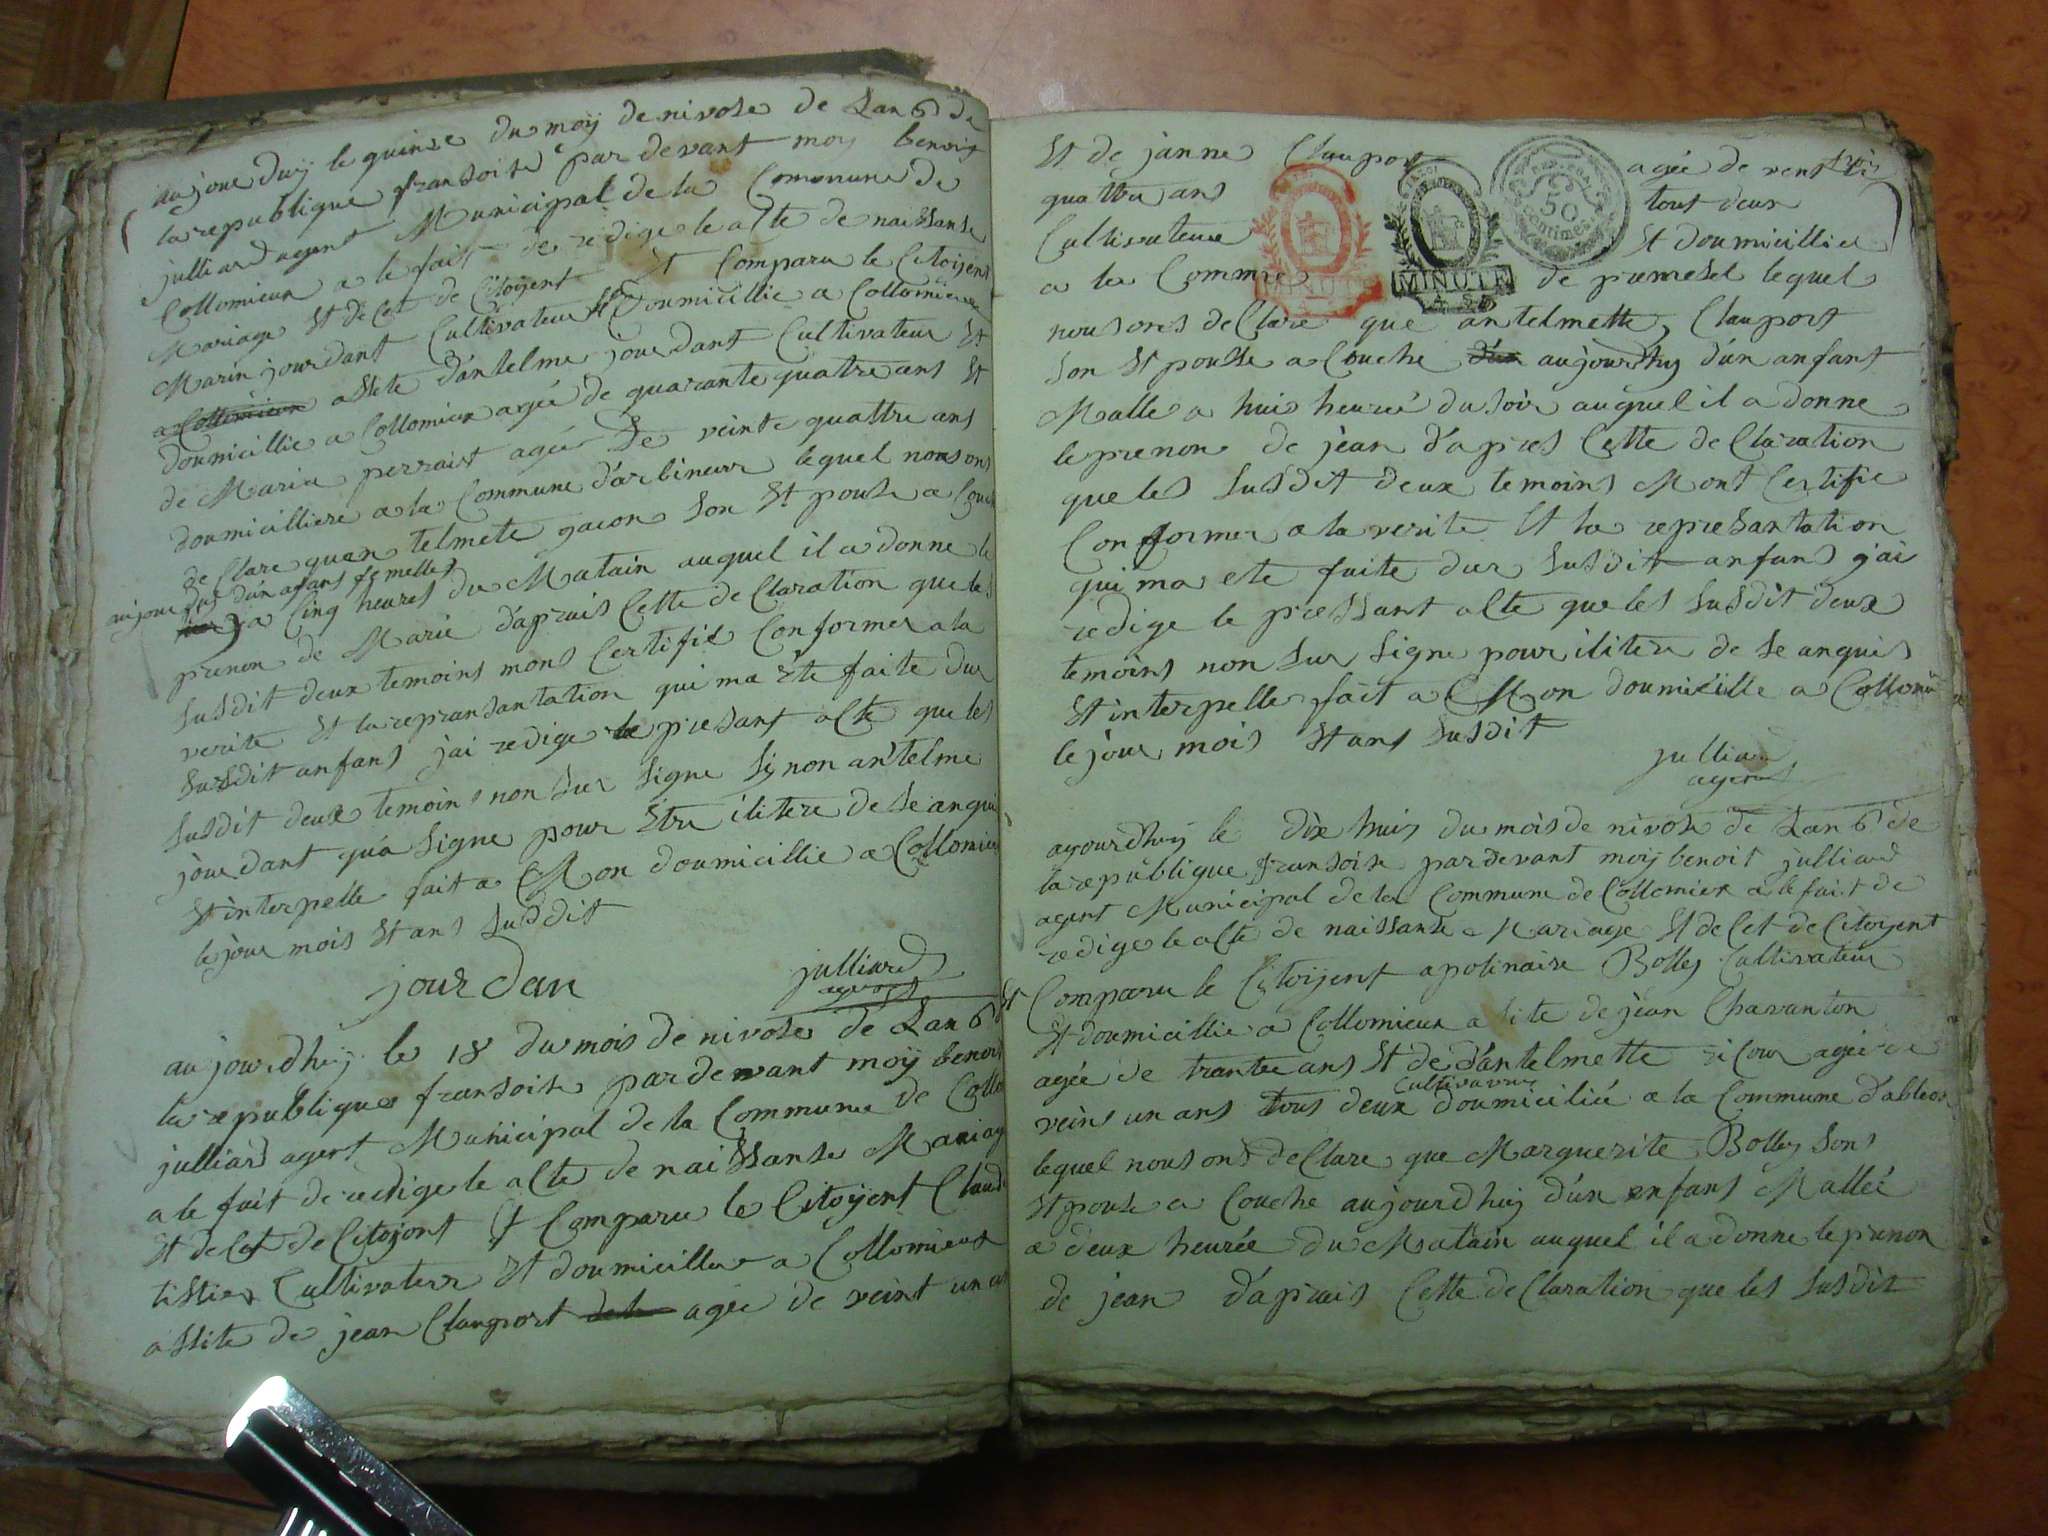 aujourduij le quinse du moij de nivose de Lan 6 de
la republique fransoise par devant moy benoit
julliard agent Municipal de la Commune de
Collomieux a le fait de redige le acte de naissanse
Mariage Et de Cet de Citoijent Et Comparu le Citoijent
Marin jourdant Cultivateur Et Doumicillie a Collomieux
a Collomieux assete d'antelme jourdant Cultivateur Et
doumicillie a Collomieux agée de quarante quattre ans Et
de Maria perraist agée De veinte quattre ans
doumicilliere a la Commune d'arbineux lequel nous ons
de Clare quan telmete gacon Son Et pouse a Couche
aujourduy d'un anfans femelles
a Cinq heures du Matain auquel il a donne le
prenon de Marie d'apruis Cette de Claration que les
Susdit deux temoins mons Certifie Conformer a la
verite Et la repransantation qui ma Ete faite dur
Susdit anfans j'ai redige le presant acte que les
Susdit deux temoins non sur Signe Sy non antelme
jourdant qu'a Signe pour Etre ilitere de se anquis
Et interpelle fait a Mon doumicillie a Collomieux
le jour mois Et ans Susdit
jourdan julliard
agent
aujourdhuij le 18 du mois de nivose de Lan 6
la republique fransoise par devant moij benoit
julliard agent Municipal de la Commune de Collo
a le fait de redige le acte de naissanse Mariag
Et de Cet de Citojont Et Comparu le Citoijent Claude
tissier Cultivateur Et doumicillier a Collomieux
assite de jean Clauport agée de veint un ans
Et de janne Clauport agée de vent
quattre ans tout deux
Cultivateur Et doumicillie
a la Comme de pumesel lequel
MINUTE
50
CENTIMES
nous ons de Clare que antelmette Clauport
Son Et pouse a Couche aujourdhuy d'un anfant
Malle a huis heureé du soir auquel il a donne
le prenon de jean d'apres Cette de Claration
que les Susdit deux temoins Mont Certifie
Conformer a la verite Et la represantation
qui ma ete faite dur Susdit anfans j'ai
redige le pressant acte que les Susdit deux
temoins non sur Signe pour iliter de se anquis
Et interpelle fait a Mon doumicille a Collomi
le jour mois Et ans Susdit
julliard
agent
ajourdhuy le dix huis du mois de nivose de Lan 6 de
la republique fransoise pardevant moij benoit julliard
agent Municipal de la Commune de Collomiex a le fait de
redige le acte de naissanse Mariage Et de Cet de Citoijent
Et Comparu le Citoijent apolinaire Bolley Cultivateur
Et doumicillie a Collomieux a site de jean Chavanton
agée de trante ans Et de d'antelmette sicour agée de
Cultivateur
veins un ans tous deux doumiciliée a la Commune d'ableon
lequel nous ons de Clare que Marguerite Bolley Sons
Et pouse a Couche aujourdhuy d'un enfans Malleé
a deux heureé du Matain auquel il a donne le prenon
de jean d'apruis Cette de Claration que les Susdit